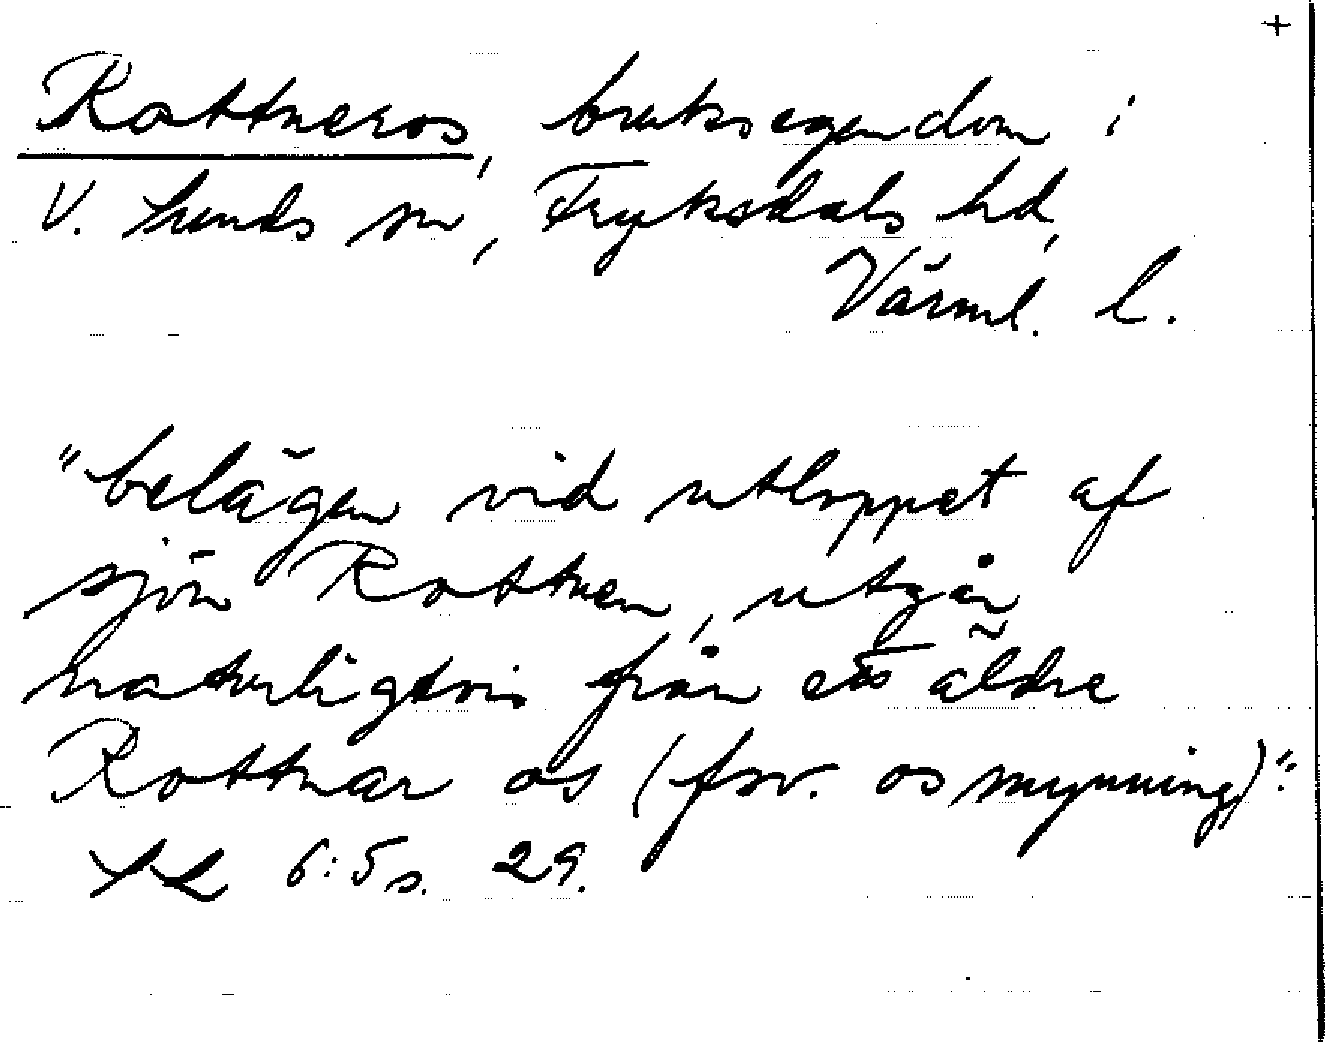 +
Rottneros, bruksegendom i
V. Sunds sn, Fryksdals hd,
Värml. l.
"belägen vid utloppet af
sjön Rottnen, utgår
naturligtvis från ett äldre
Rottnar os (fsv. os mynning)".
6:5 s. 29.